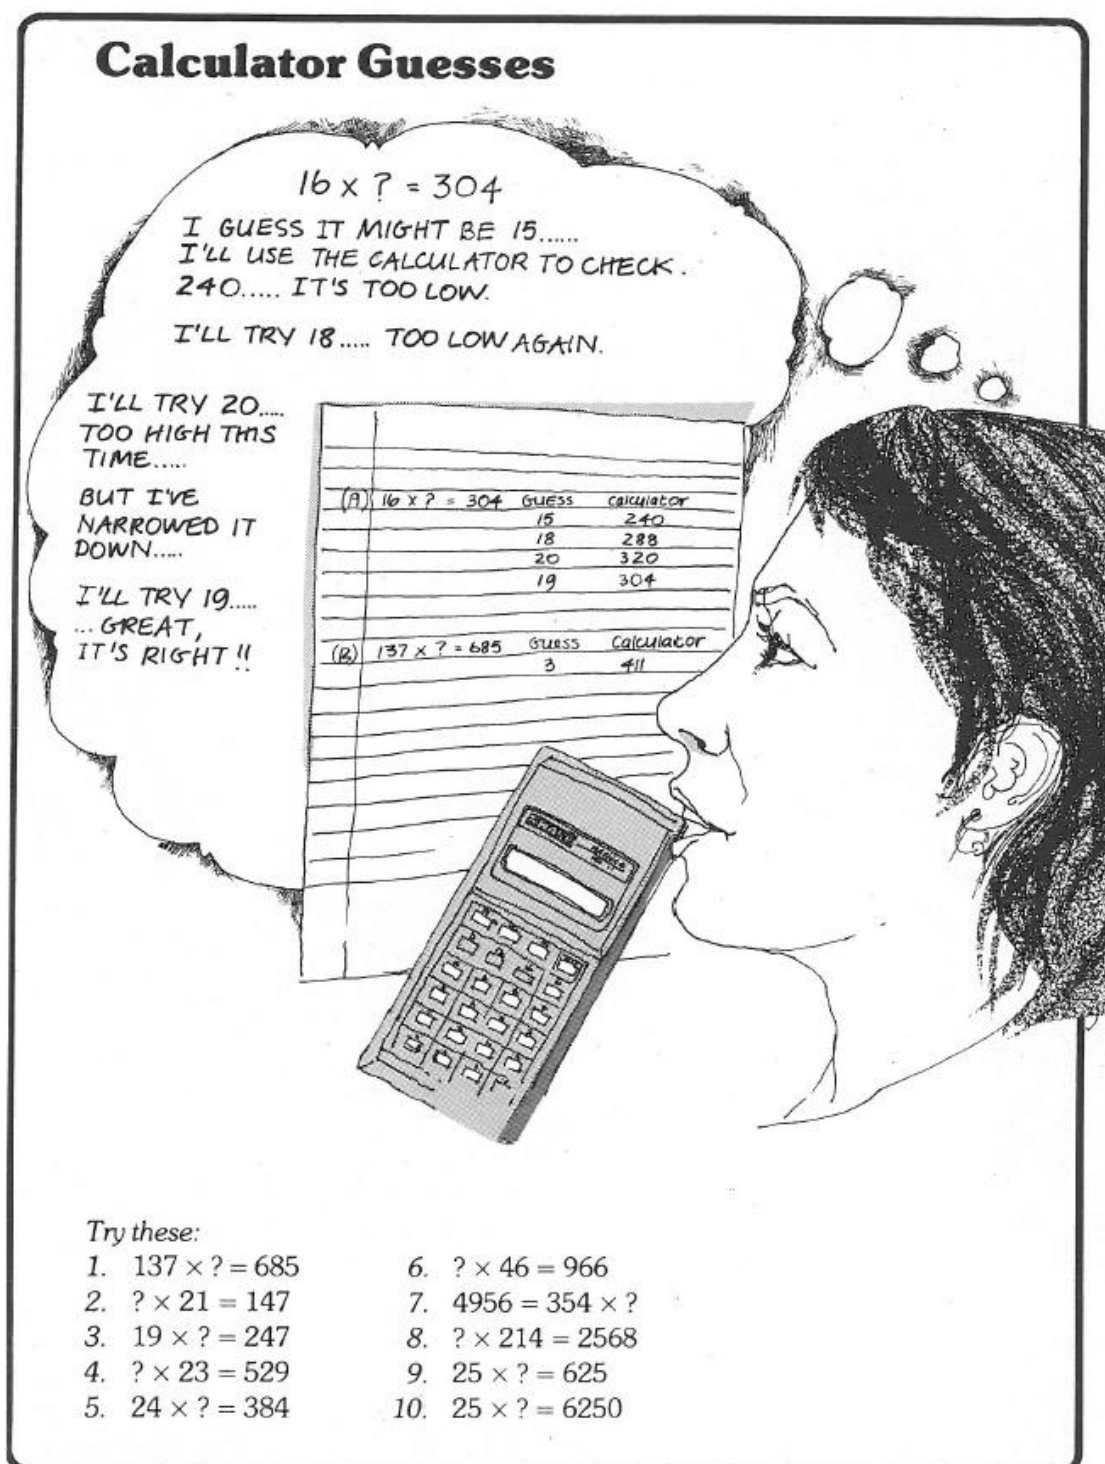 Calculator Guesses
16 x ? = 304
I GUESS IT MIGHT BE 15......
I'LL USE THE CALCULATOR TO CHECK.
240..... IT'S TOO LOW.
I'LL TRY 18..... TOO LOW AGAIN.
I'LL TRY 20.....
TOO HIGH THIS
TIME.....
BUT I'VE
NARROWED IT
DOWN.....
I'LL TRY 19.....
... GREAT,
IT'S RIGHT !!
(A) 16 x ? = 304 GUESS calculator
15 240
18 288
20 320
19 304
(B) 137 x ? = 685 Guess Calculator
3 411
Try these:
1. 137 × ? = 685
2. ? × 21 = 147
3. 19 × ? = 247
4. ? × 23 = 529
5. 24 × ? = 384
6. ? × 46 = 966
7. 4956 = 354 × ?
8. ? × 214 = 2568
9. 25 × ? = 625
10. 25 × ? = 6250